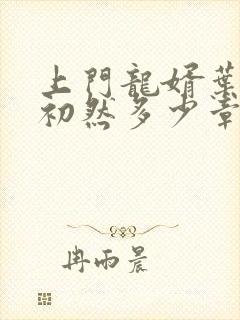 上門龍婿葉
初然多少章
冉雨晨